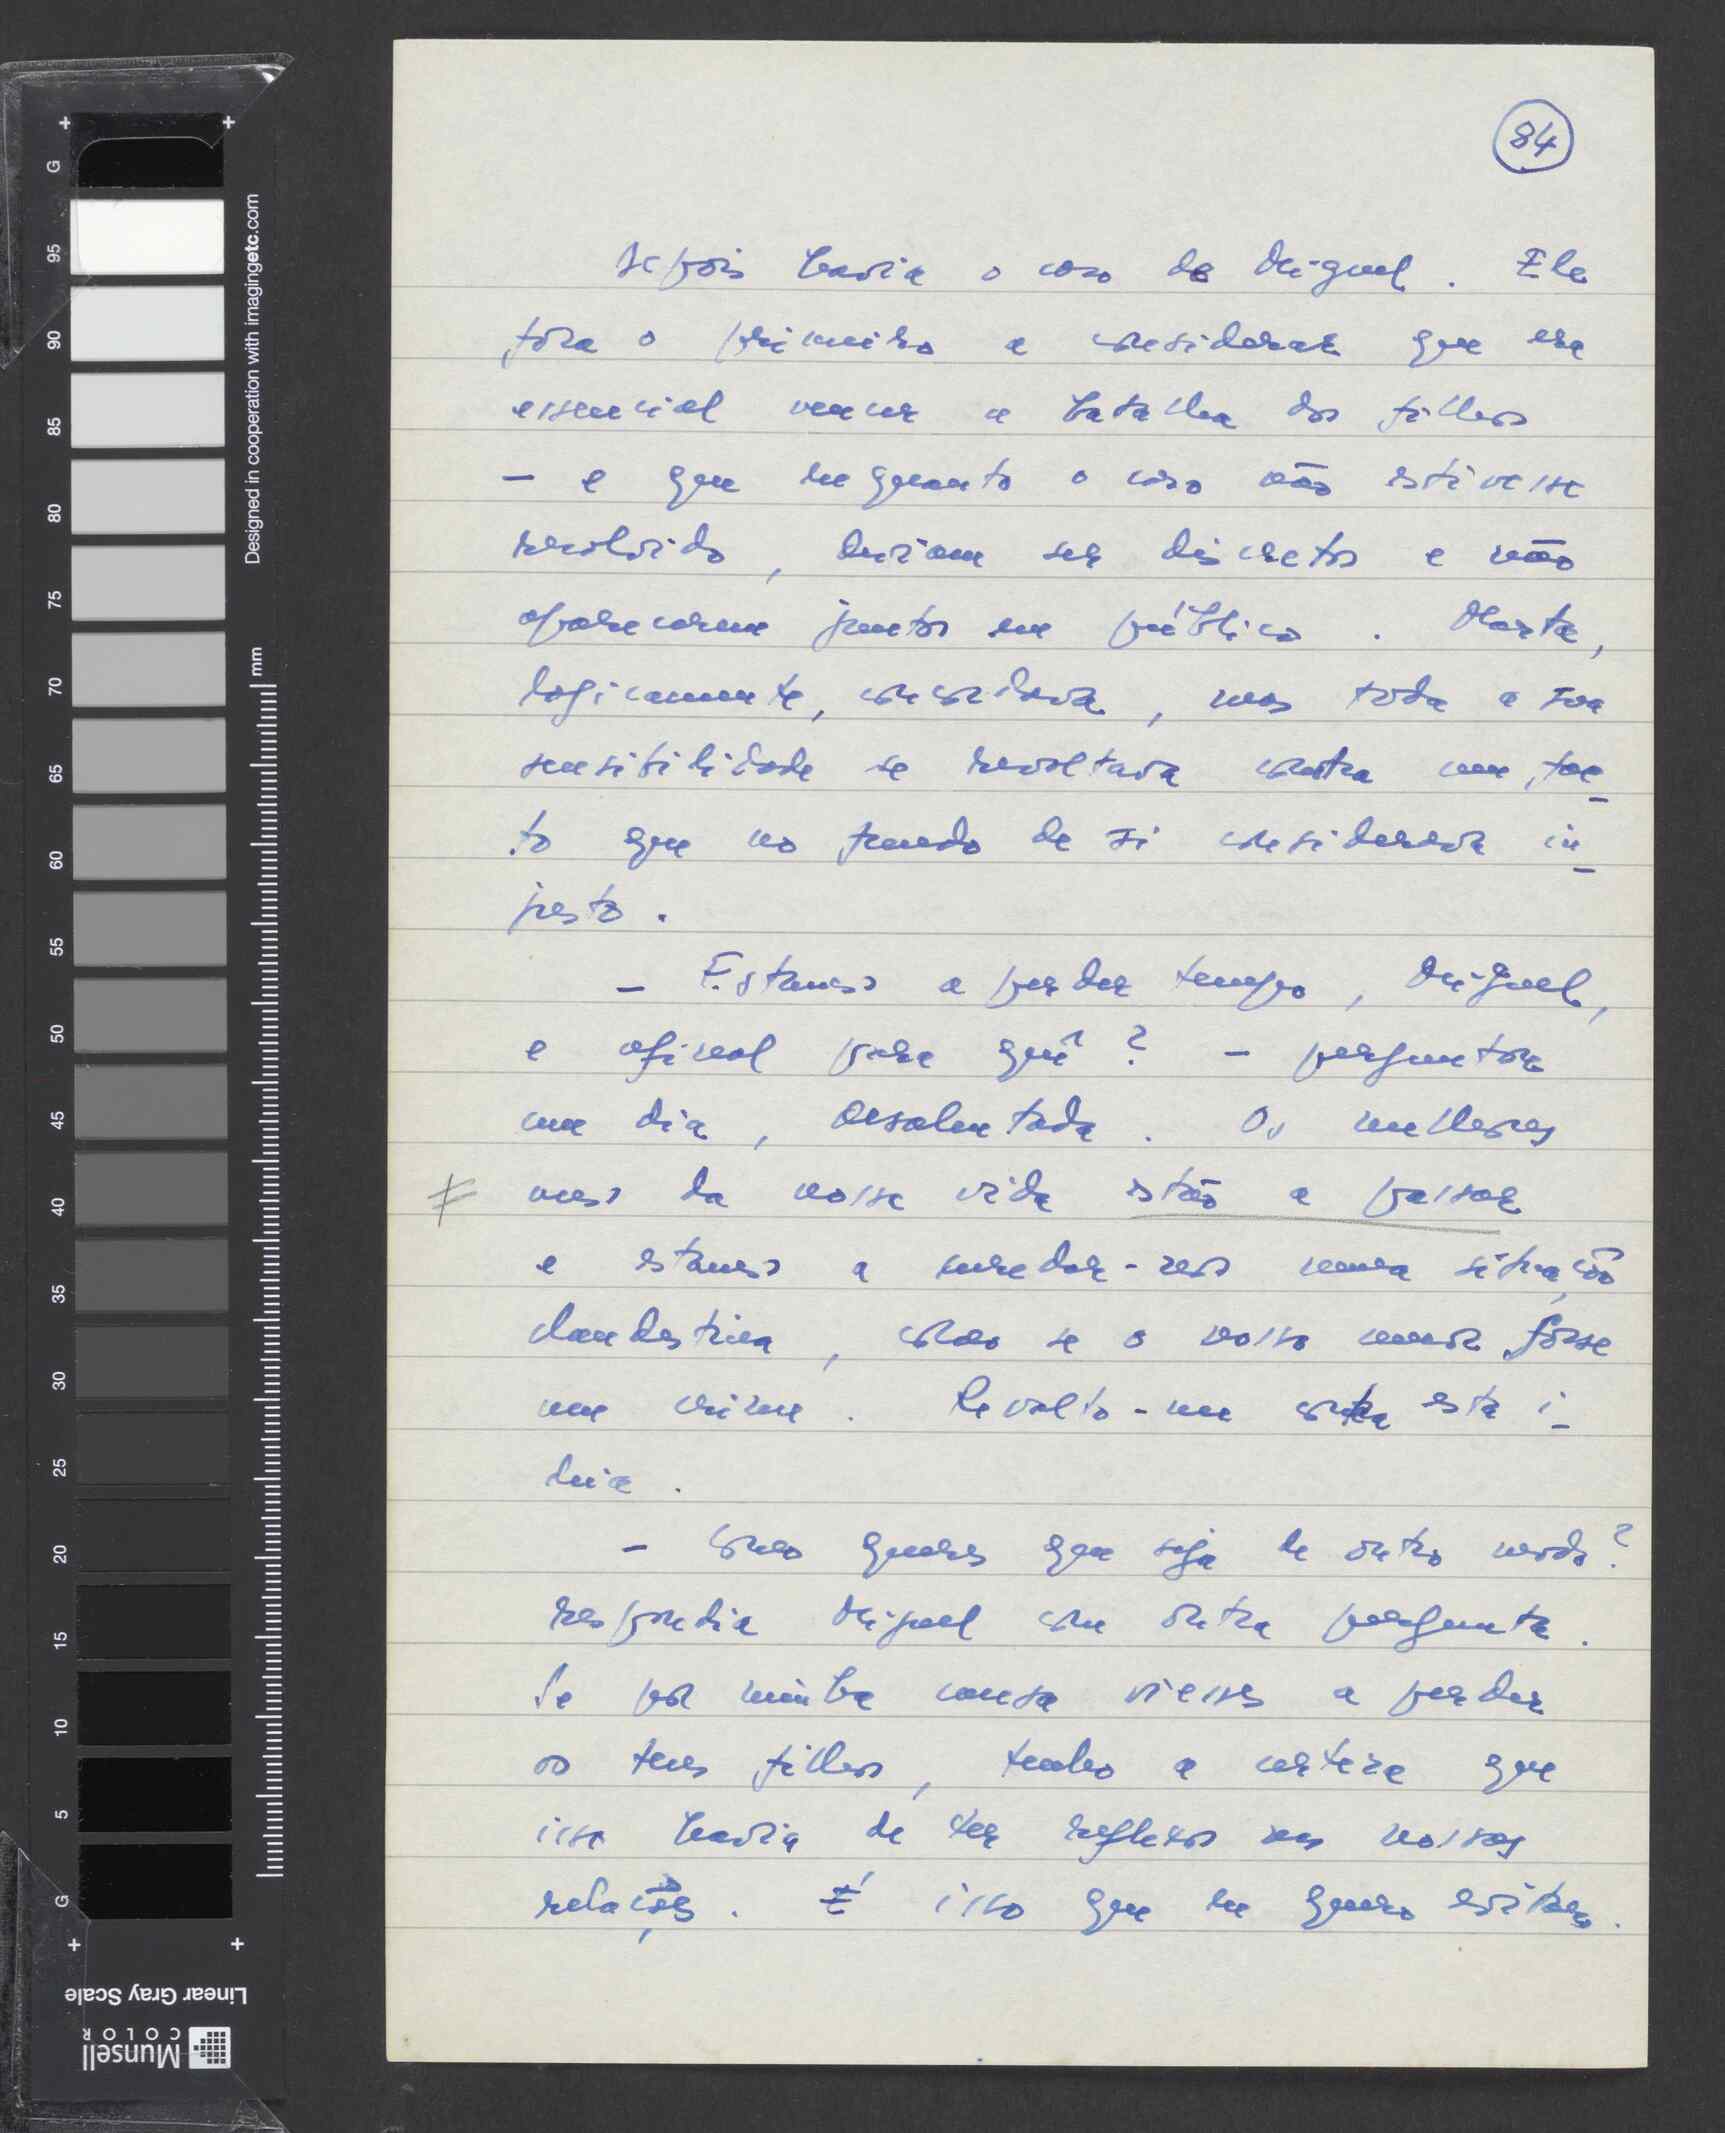 84
Depois havia o caso de Miguel. Ele
fôra o primeiro a considerar que era
essencial vencer a batalha dos filhos
- e que enquanto o caso não estivesse
resolvido, deviam ser discretos e não
aparecerem juntos em público. Marta,
logicamente, concordava, mas toda a sua
sensibilidade se revoltava contra um fac-
to que no fundo de si considerava in-
justo.
- Estamos a perder tempo, Miguel,
e afinal para quê? - perguntara
um dia, desalentada. Os melhores
anos da nossa vida estão a passar
e estamos a enredar-nos numa situação
clandestina, como se o nosso amor fôsse
um crime. Revolto-me contra esta i-
deia.
- Como queres que seja de outro modo?
respondia Miguel com outra pergunta.
Se por minha causa viesses a perder
os teus filhos, tenho a certeza que
isso havia de ter reflexos nas nossas
relações. É isso que eu quero evitar.
Designed in cooperation with imagingetc.com
mm
G
95
90
85
80
75
70
65
60
55
50
45
40
35
30
25
20
15
10
5
G
Linear Gray Scale
Munsell
COLOR